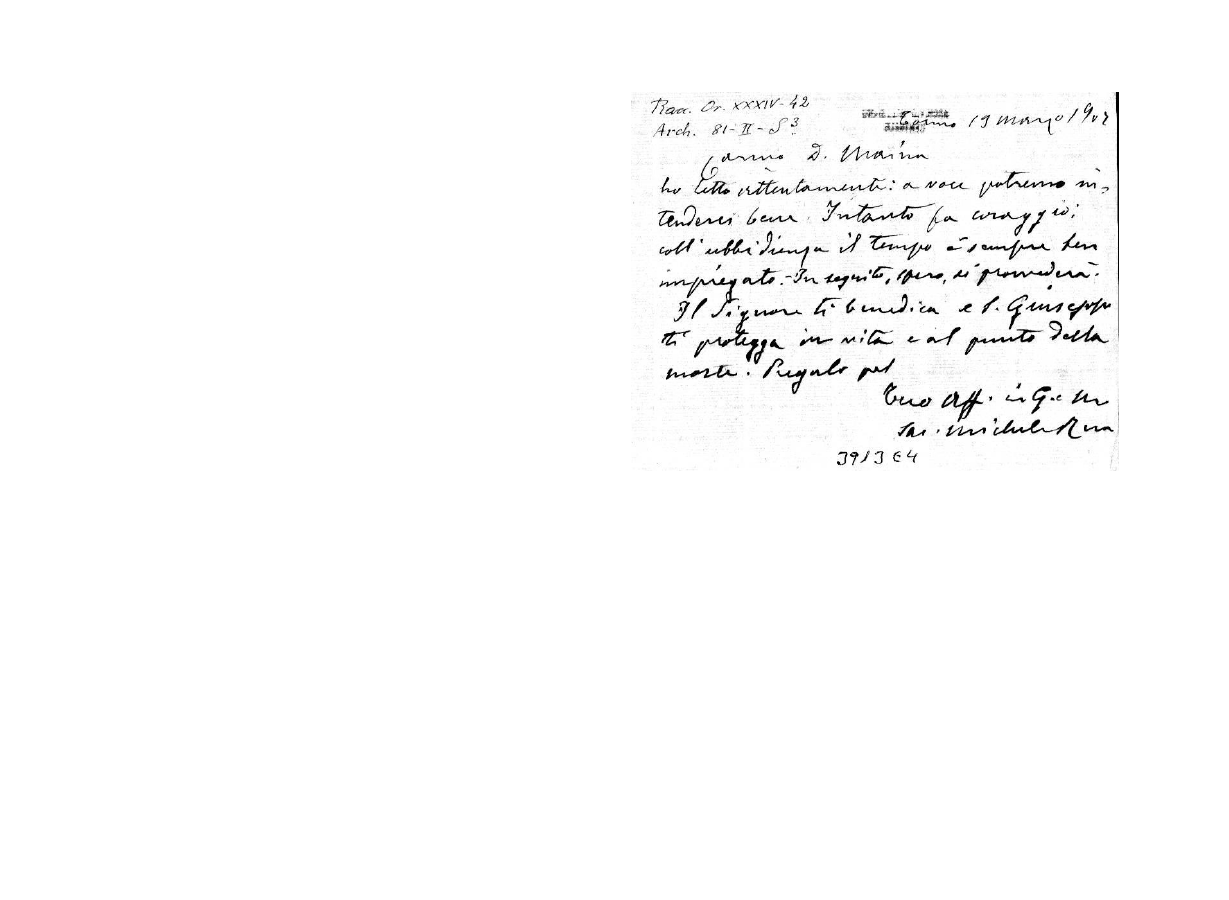 Racc. Or. XXXIV-42
Arch. 81-II-S3
Torino 19 Marzo 1902
Carmo D. Maina
ho letto attentamente: a voce potremo in-
tenderci bene. Intanto fa coraggio;
coll'ubbidienza il tempo è sempre ben
impiegato. In seguito, spero, si provvederà.
Il Signore ti benedica e S. Giuseppe
ti protegga in vita e al punto della
morte. Pregalo pel
Tuo aff. in G. e M
Sac. Michele Rua
3913 E4